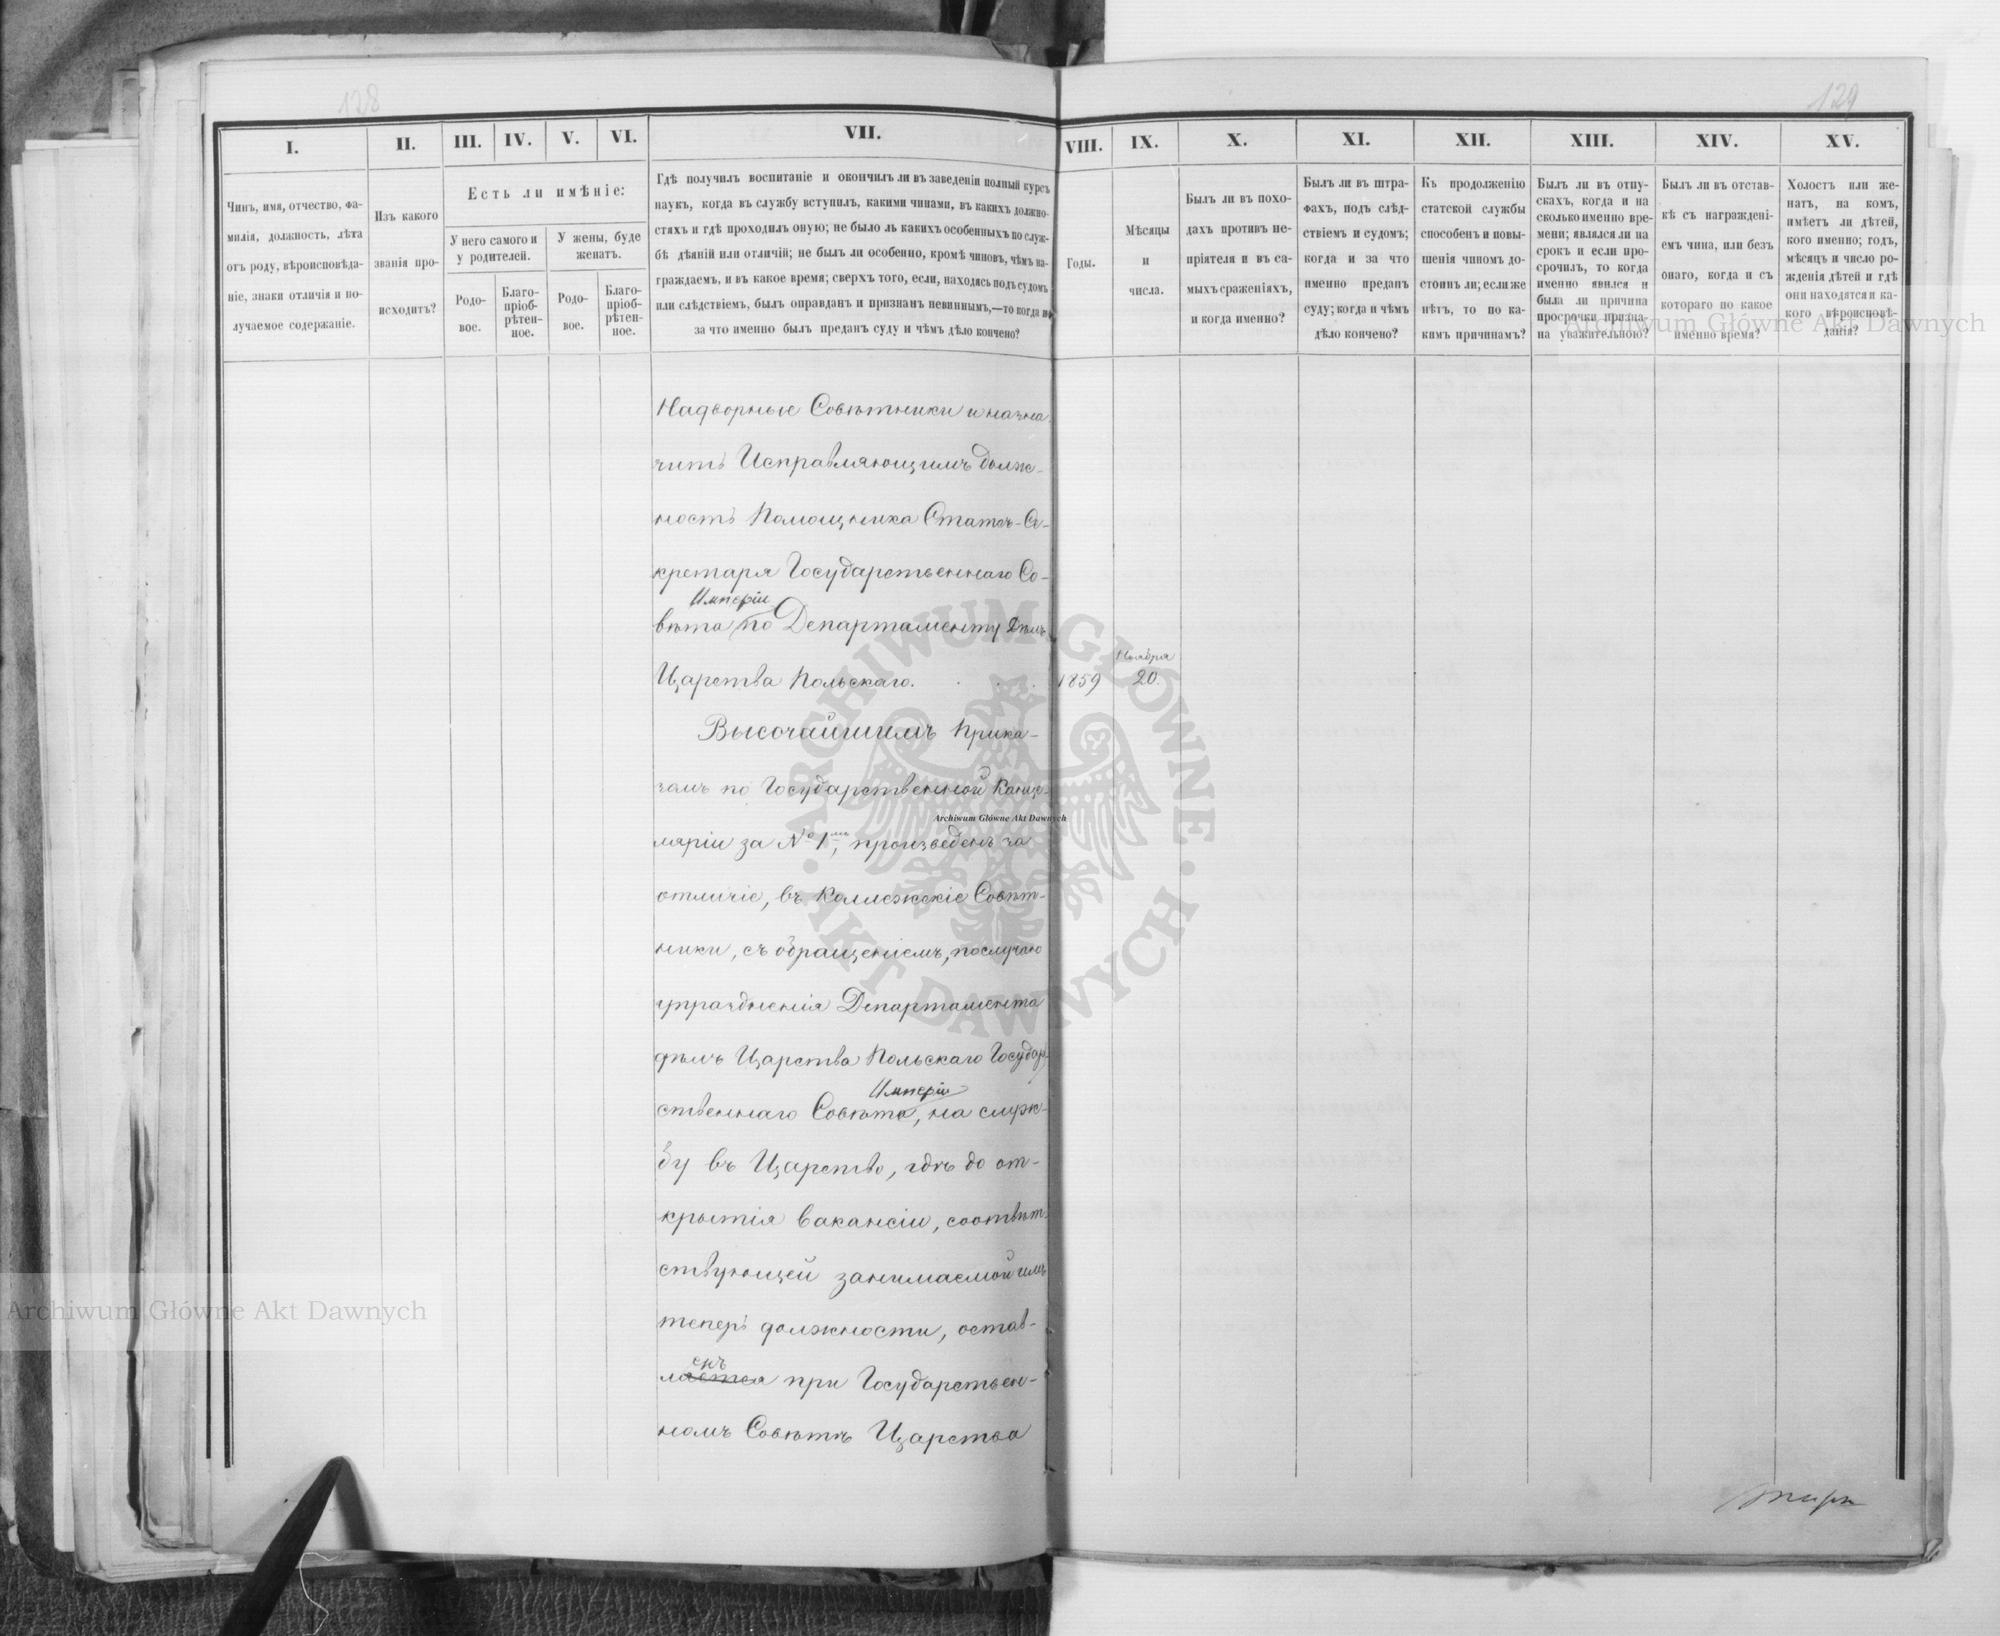 128
129
I.
II.
III.
IV.
V.
VI.
VII.
VIII.
IX.
X.
XI.
XII.
XIII.
XIV.
XV.
Чинъ, имя, отчество, фа-
милія, должность, лѣта
отъ роду, вѣроисповѣда-
ніе, знаки отличія и по-
лучаемое содержаніе.
Изъ какого
званія про-
исходитъ?
Есть ли имѣніе:
У него самого и
у родителей.
У жены, буде
женатъ.
Родо-
вое.
Благо-
пріоб-
рѣтен-
ное.
Родо-
вое.
Благо-
пріоб-
рѣтен-
ное.
Гдѣ получилъ воспитаніе и окончилъ ли въ заведеніи полный курсъ
наукъ, когда въ службу вступилъ, какими чинами, въ какихъ должно-
стяхъ и гдѣ проходилъ оную; не было ль какихъ особенныхъ по служ-
бѣ дѣяній или отличій; не былъ ли особенно, кромѣ чиновъ, чѣмъ на-
граждаемъ, и въ какое время; сверхъ того, если, находясь подъ судомъ
или слѣдствіемъ, былъ оправданъ и признанъ невиннымъ,—то когда и
за что именно былъ преданъ суду и чѣмъ дѣло кончено?
Годы.
Мѣсяцы
и
числа.
Былъ ли въ похо-
дахъ противъ не-
пріятеля и въ са-
мыхъ сраженіяхъ,
и когда именно?
Былъ ли въ штра-
фахъ, подъ слѣд-
ствіемъ и судомъ;
когда и за что
именно преданъ
суду; когда и чѣмъ
дѣло кончено?
Къ продолженію
статской службы
способенъ и повы-
шенія чиномъ до-
стоинъ ли; если же
нѣтъ, то по ка-
кимъ причинамъ?
Былъ ли въ отпу-
скахъ, когда и на
сколько именно вре-
мени; являлся ли на
срокъ и если про-
срочилъ, то когда
именно явился и
была ли причина
просрочки призна-
на уважительною?
Былъ ли въ отстав-
кѣ съ награжденi-
емъ чина, или безъ
онаго, когда и съ
котораго по какое
именно время?
Холостъ или же-
натъ, на комъ,
имѣетъ ли дѣтей,
кого именно; годъ,
мѣсяцъ и число ро-
жденія дѣтей и гдѣ
они находятся и ка-
кого вѣроисповѣ-
данія?
Надворные Совѣтники и назна
чить Исправляющимъ долж-
ность Помощника Статсъ-Се-
кретаря Государственнаго Со-
Имперіи
вѣта по Департаменту Дѣлъ
Царства Польскаго.
1859
Ноября
20.
Высочайшимъ Прика-
зомъ по Государственной Канце-
ляріи за № 1мъ, произведенъ за
отличіе, въ Коллежскіе Совѣт-
ники, съ обращеніемъ, по случаю
упраздненія Департамента
дѣлъ Царства Польскаго Государ
Имперіи
ственнаго Совѣта, на служ-
бу въ Царство, гдѣ до от-
крытія вакансіи, соотвѣт-
ствующей занимаемой имъ
теперь должности, остав-
енъ
ляется при Государствен-
номъ Совѣтѣ Царства
Archiwum Główne Akt Dawnych
Archiwum Główne Akt Dawnych
Archiwum Główne Akt Dawnych
ARCHIWUM GŁÓWNE · AKT DAWNYCH ·